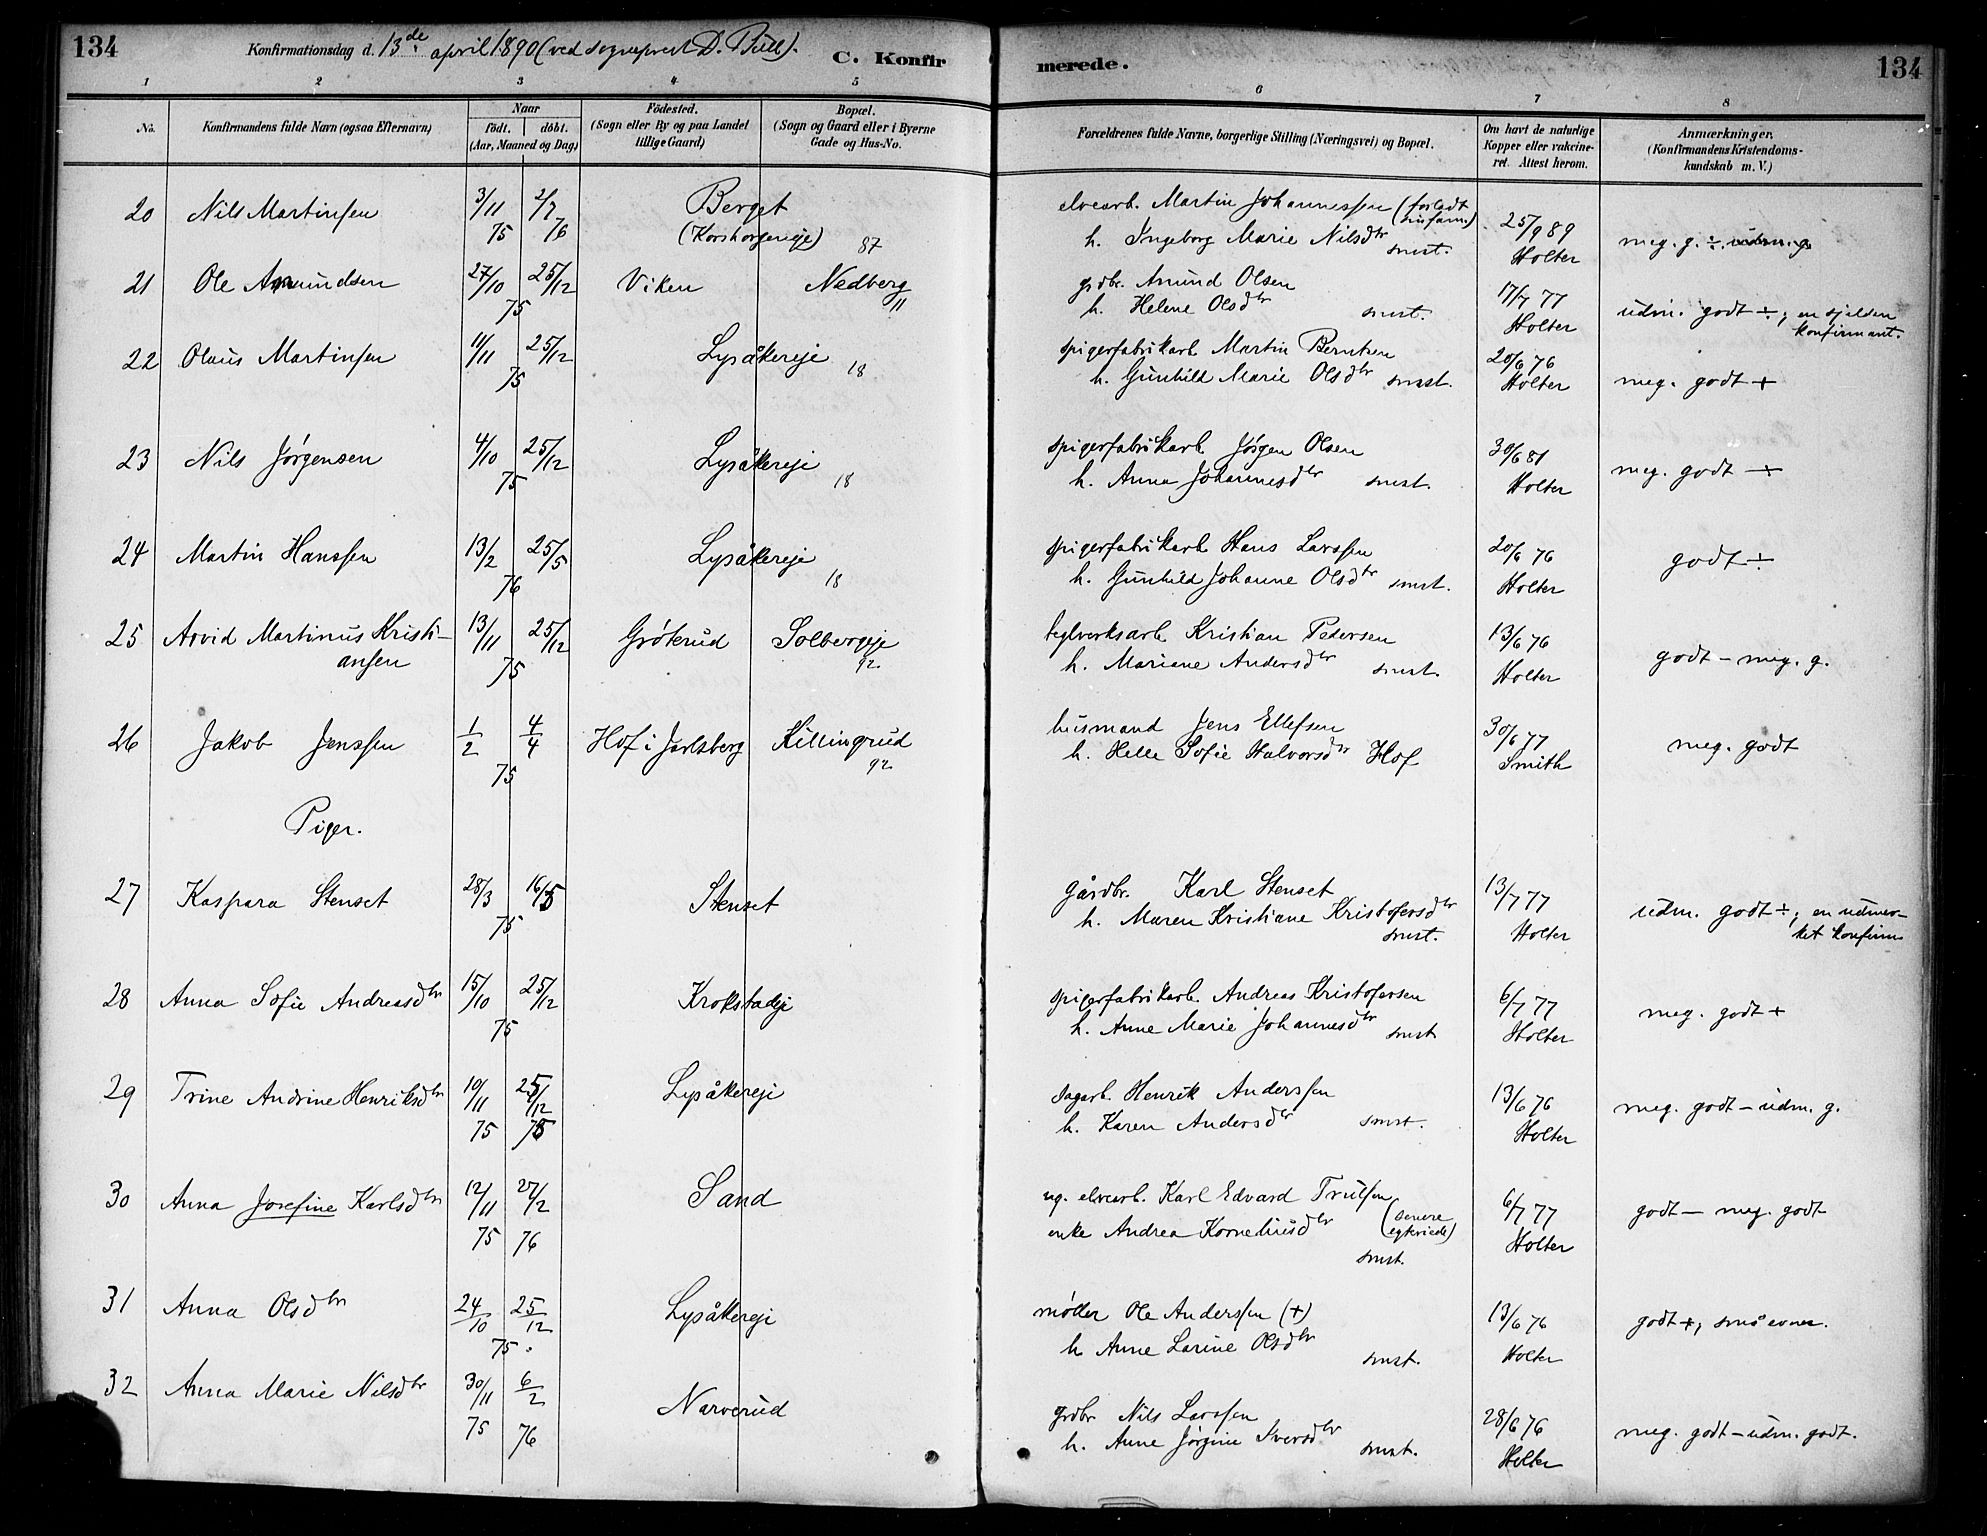 134
Konfirmationsdag d. 13de april 1890 (ved sogneprest D. Bull).
C. Konfir
merede.
134
1 2 3 4 5 6 7 8
No.
Konfirmandens fulde Navn (ogsaa Efternavn)
Naar
födt. döbt.
(Aar, Maaned og Dag)
Födested.
(Sogn eller By og paa Landet
tillige Gaard)
Bopæl.
(Sogn og Gaard eller i Byerne
Gade og Hus-No.
Forældrenes fulde Navne, borgerlige Stilling (Næringsvei) og Bopæl.
Om havt de naturlige
Kopper eller vakcine-
ret. Attest herom.
Anmærkninger.
(Konfirmandens Kristendoms-
kundskab m. V.)
20 Nils Martinsen 3/11 75 2/7 76 Berget
(Korsborgereje) 87
elvearb. Martin Johannessen (forladt
sin fam.)
h. Ingeborg Marie Nilsdtr smst.
25/9 89
Holter
meg. g. ÷ udm. g.
21 Ole Amundsen 27/10 25/12 75 Viken Nedberg 11
grdbr. Amund Olsen
h. Helene Olsdtr smst.
17/7 77
Holter
udm. godt ÷; en sjelden
konfirmant.
22 Olaus Martinsen 11/11 25/12 75 Lysåkereje 18
spigerfabrikarb. Martin Berntsen
h. Gunhild Marie Olsdtr smst.
20/6 76
Holter
meg. godt +
23 Nils Jørgensen 4/10 25/12 75 Lysåkereje 18
spigerfabrikarb Jørgen Olsen
h. Anna Johannesdtr smst.
30/6 81
Holter
meg. godt ÷
24 Martin Hanssen 13/2 25/5 76 Lysåkereje 18
spigerfabrikarb Hans Larssen
h. Gunhild Johanne Olsdtr smst.
20/6 76
Holter
godt ÷
25 Arvid Martinus Kristi-
ansen
13/11 25/12 75 Grøterud Solbergeje 92
teglverksarb Kristian Pedersen
h. Mariane Andersdtr smst.
13/6 76
Holter
godt – meg. g.
26 Jakob Jenssen 1/2 4/4 75 Hof i Jarlsberg Killingrud 92
husmand Jens Ellefsen
h. Helle Sofie Halvorsdtr Hof
30/6 77
Smith
meg. godt
Piger.
27 Kaspara Stenset 28/3 16/5 75 Stenset
gårdbr. Karl Stenset
h. Maren Kristiane Kristofersdtr
smst.
13/7 77
Holter
udm. godt ÷; en udmær-
ket konfirm.
28 Anna Sofie Andreasdtr 15/10 25/12 75 Krokstadeje
spigerfabrikarb. Andreas Kristofersen
h. Anne Marie Johannesdtr smst
6/7 77
Holter
meg. godt +
29 Trine Andrine Henriksdtr 10/11 75 25/12 75 Lysåkereje
sagarb. Henrik Anderssen
h. Karen Andersdtr smst.
13/6 76
Holter
meg. godt – udm. g.
30 Anna Josefine Karlsdtr 12/11 75 27/2 76 Sand
ug. elvearb. Karl Edvard Trulsen
enke Andrea Korneliusdtr (senere
egteviede)
smst.
6/7 77
Holter
godt – meg. godt
31 Anna Olsdtr 24/10 25/12 75 Lysåkereje
møller Ole Anderssen (+)
h Anne Larine Olsdtr
smst.
13/6 76
Holter
godt +, små evner.
32 Anna Marie Nilsdtr 30/11 75 6/2 76 Narverud
grdbr Nils Larssen
h. Anne Jørgine Iversdtr smst.
28/6 76
Holter
meg. godt – udm. godt.